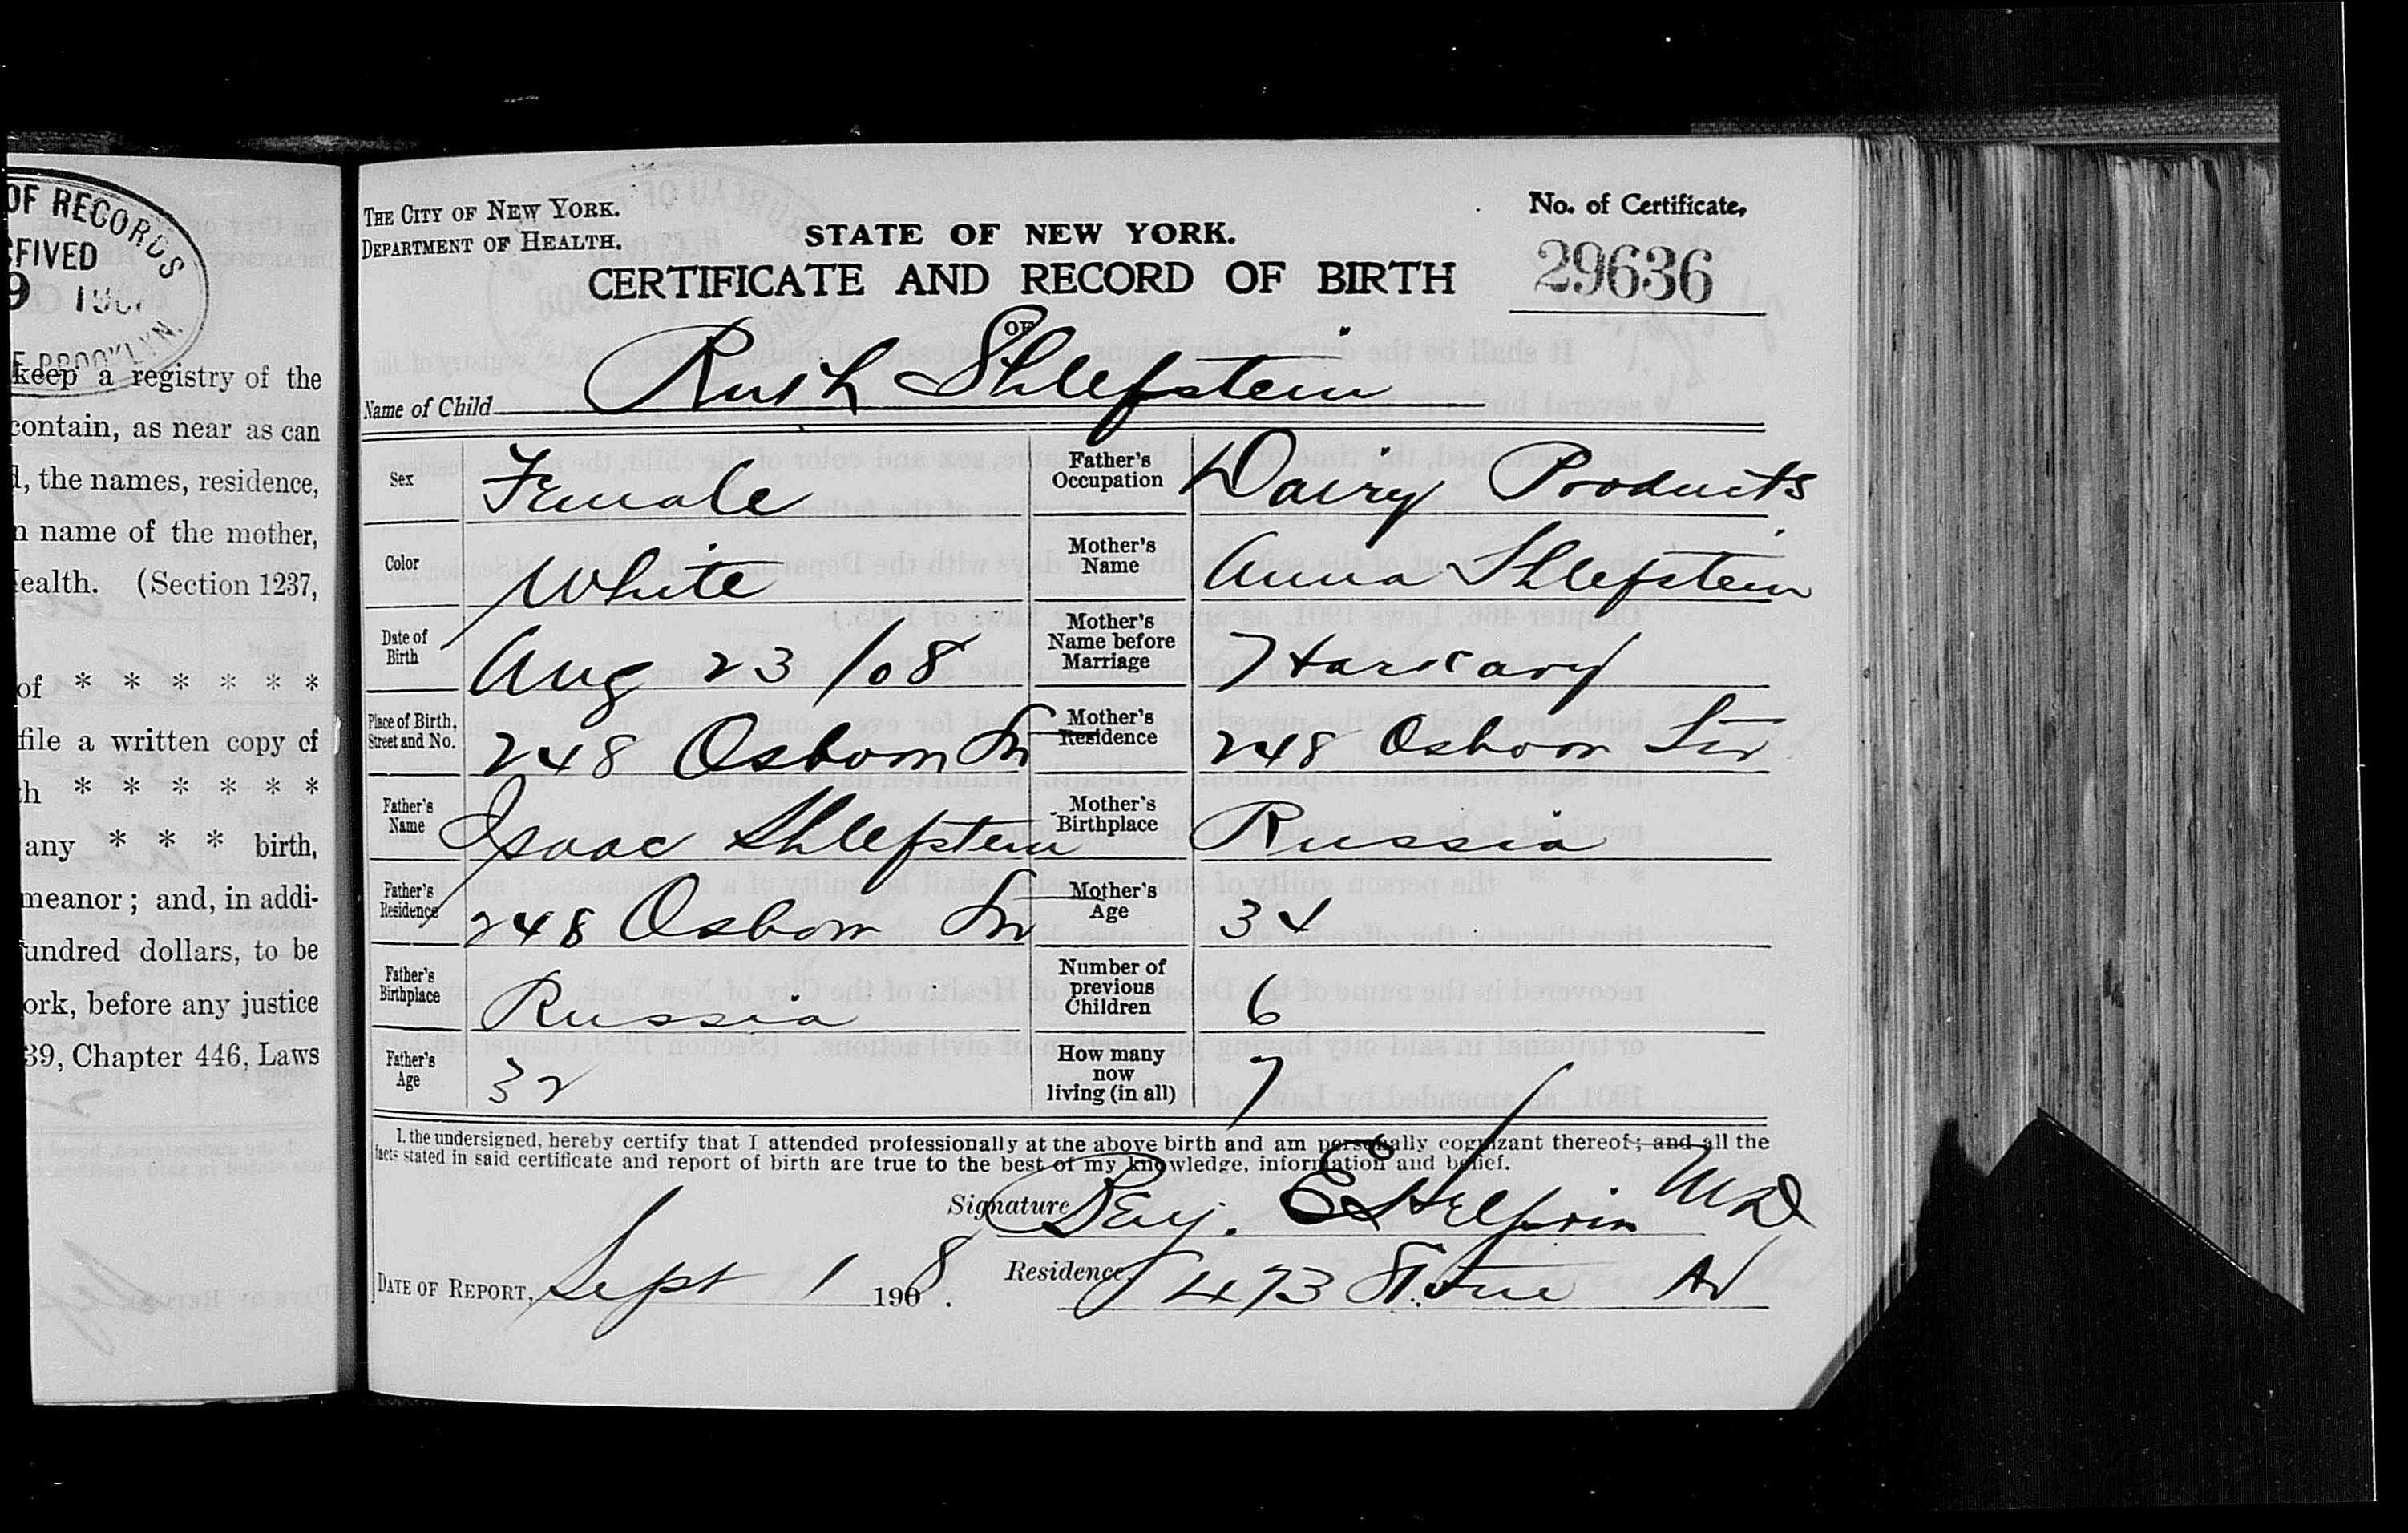 OF RECORDS
9
keep a registry of the
contain, as near as can
, the names, residence,
name of the mother,
ealth. (Section 1237,
of * * * * * *
file a written copy of
h * * * * * *
any * * * birth,
meanor; and, in addi-
undred dollars, to be
ork, before any justice
39, Chapter 446, Laws
THE CITY OF NEW YORK.
DEPARTMENT OF HEALTH.
STATE OF NEW YORK.
CERTIFICATE AND RECORD OF BIRTH
OF
No. of Certificate,
29636
Name of Child Ruth Shlefstein
Sex Female
Father's Occupation Dairy Products
Color White
Mother's Name Anna Shlefstein
Date of Birth Aug 23 /08
Mother's Name before Marriage Harkavy
Place of Birth, Street and No. 248 Osborn Str
Mother's Residence 248 Osborn Str
Father's Name Isaac Shlefstein
Mother's Birthplace Russia
Father's Residence 248 Osborn Str
Mother's Age 34
Father's Birthplace Russia
Number of previous Children 6
Father's Age 32
How many now living (in all) 7
I, the undersigned, hereby certify that I attended professionally at the above birth and am personally cognizant thereof; and all the
facts stated in said certificate and report of birth are true to the best of my knowledge, information and belief.
Signature, Benj. E Helprin MD
DATE OF REPORT, Sept 1 1908.
Residence, 473 Stone Av